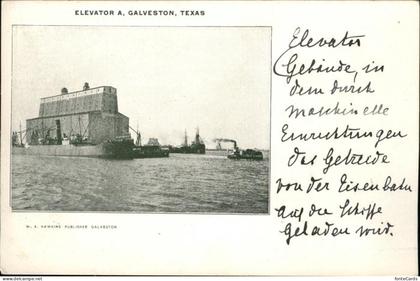 ELEVATOR A, GALVESTON, TEXAS
Elevator
Gebäude, in
dem durch
maschinelle
Einrichtungen
das Getreide
von der Eisenbahn
auf die Schiffe
geladen wird.
W. A. HAWKINS PUBLISHER GALVESTON
© fonteCards.com